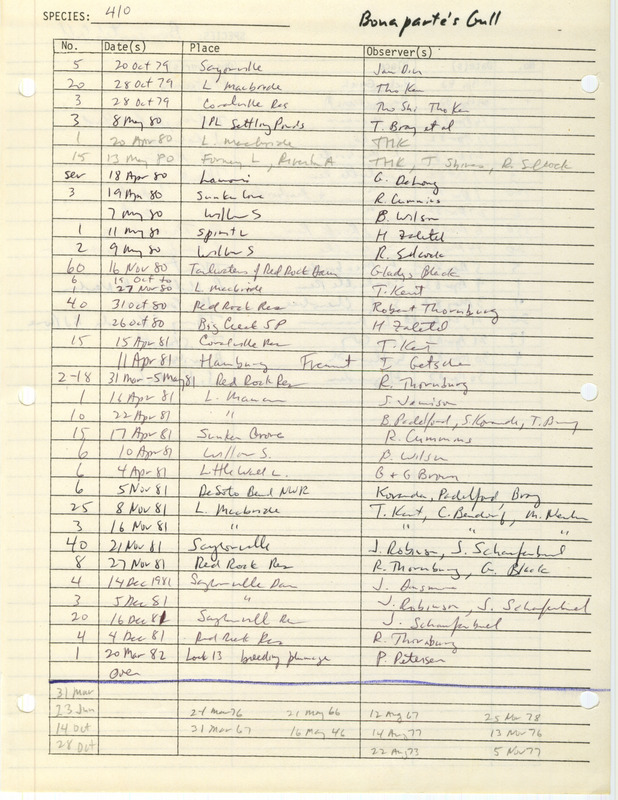 SPECIES: 410 Bonaparte's Gull
No. Date(s) Place Observer(s)
5 20 Oct 79 Saylorville Jim Din
20 28 Oct 79 L. Macbride Tho Ken
3 28 Oct 79 Coralville Res Tho Shi Tho Ken
3 8 May 80 IPL Settling Ponds T. Bray et al
1 20 Apr 80 L. Macbride THK
15 13 May 80 Forney L, Riverton A THK, T Shires, R. Silcock
sev 18 Apr 80 Lamoni G. DeLong
3 19 Apr 80 Sunken Grove R. Cummins
7 May 80 Willow S B. Wilson
1 11 May 80 Spirit L H Zaletel
2 9 May 80 Willow S R. Silcock
60 16 Nov 80 Tailwaters of Red Rock Dam Gladys Black
6 15 Oct to
1 27 Nov 80 L. Macbride T. Kent
40 31 Oct 80 Red Rock Res Robert Thornburg
1 26 Oct 80 Big Creek SP H Zaletel
15 15 Apr 81 Coralville Res T. Kent
11 Apr 81 Hamburg Fremt I Getscher
2-18 31 Mar - 5 May 81 Red Rock Res R. Thornburg
1 16 Apr 81 L. Manawa S. Jamison
10 22 Apr 81 " B. Padelford, S. Kovanda, T. Bray
15 17 Apr 81 Sunken Grove R. Cummins
6 10 Apr 81 Willow S. B. Wilson
6 4 Apr 81 Little Wall L. B + G Brown
6 5 Nov 81 DeSoto Bend NWR Kovanda, Padelford, Bray
25 8 Nov 81 L. Macbride T. Kent, C. Bendorf, M. Newlon
3 16 Nov 81 " " " "
40 21 Nov 81 Saylorville J. Robinson, S. Schaufenbuel
8 27 Nov 81 Red Rock Res R. Thornburg, G. Black
4 14 Dec 1981 Saylorville Dam J. Dinsmore
3 5 Dec 81 " J. Robinson, S. Schaufenbuel
20 16 Dec 81 Saylorville Res J. Schaufenbuel
4 4 Dec 81 Red Rock Res R. Thornburg
1 20 Mar 82 Lock 13 breeding plumage P. Petersen
over
31 Mar
23 Jun 24 Mar 76 21 May 66 12 Aug 67 25 Nov 78
14 Oct 31 Mar 67 16 May 46 14 Aug 77 13 Nov 76
28 Oct 22 Aug 73 5 Nov 77